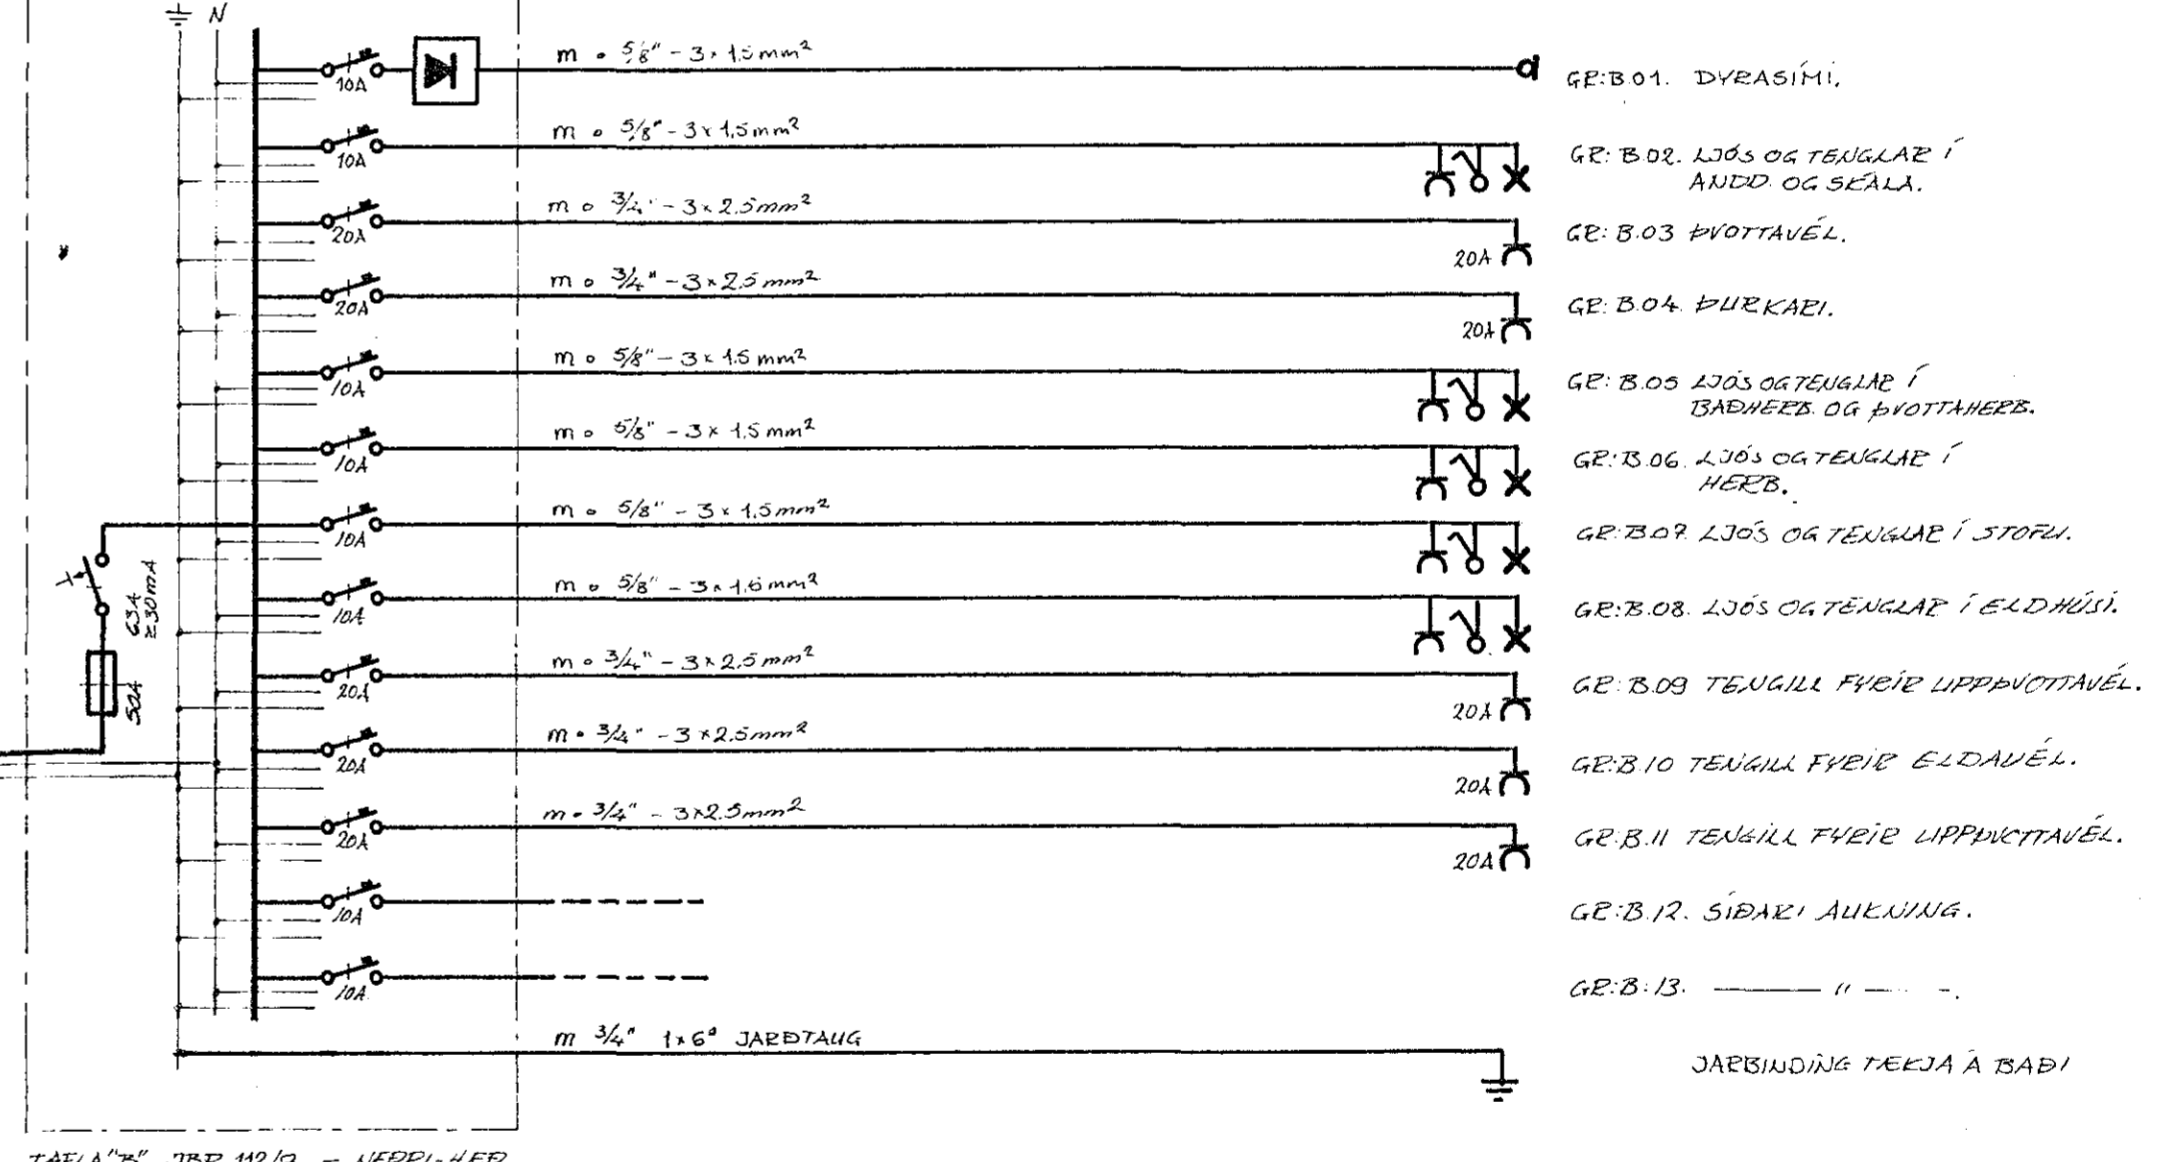 N
10A
m ∘ 5/8" - 3 × 1.5mm²
GR:B.01. DYRASÍMI.
10A
m ∘ 5/8" - 3 × 1.5mm²
GR: B.02. LJÓS OG TENGLAR Í
ANDD. OG SKÁLA.
20A
m ∘ 3/4" - 3 × 2.5mm²
20A
GR: B.03 ÞVOTTAVÉL.
20A
m ∘ 3/4" - 3 × 2.5mm²
20A
GR: B.04. ÞURKARI.
10A
m ∘ 5/8" - 3 × 1.5mm²
GR: B.05 LJÓS OG TENGLAR Í
BAÐHERB. OG ÞVOTTAHERB.
10A
m ∘ 5/8" - 3 × 1.5mm²
GR:B.06. LJÓS OG TENGLAR Í
HERB.
10A
m ∘ 5/8" - 3 × 1.5mm²
GR:B.07. LJÓS OG TENGLAR Í STOFU.
63A
≥30mA
50A
10A
m ∘ 5/8" - 3 × 1.5mm²
GR:B.08. LJÓS OG TENGLAR Í ELDHÚSI.
20A
m ∘ 3/4" - 3 × 2.5mm²
20A
GR:B.09 TENGILL FYRIR UPPÞVOTTAVÉL.
20A
m ∘ 3/4" - 3 × 2.5mm²
20A
GR:B.10 TENGILL FYRIR ELDAVÉL.
20A
m ∘ 3/4" - 3×2.5mm²
20A
GR:B.11 TENGILL FYRIR UPPÞVOTTAVÉL.
10A
GR:B.12. SÍÐARI AUKNING.
10A
GR:B:13. —— " —— .
m 3/4" 1×6▫ JARÐTAUG
JARBINDING TÆKJA Á BAÐI
TAFLA "B"
NEÐRI-HÆÐ